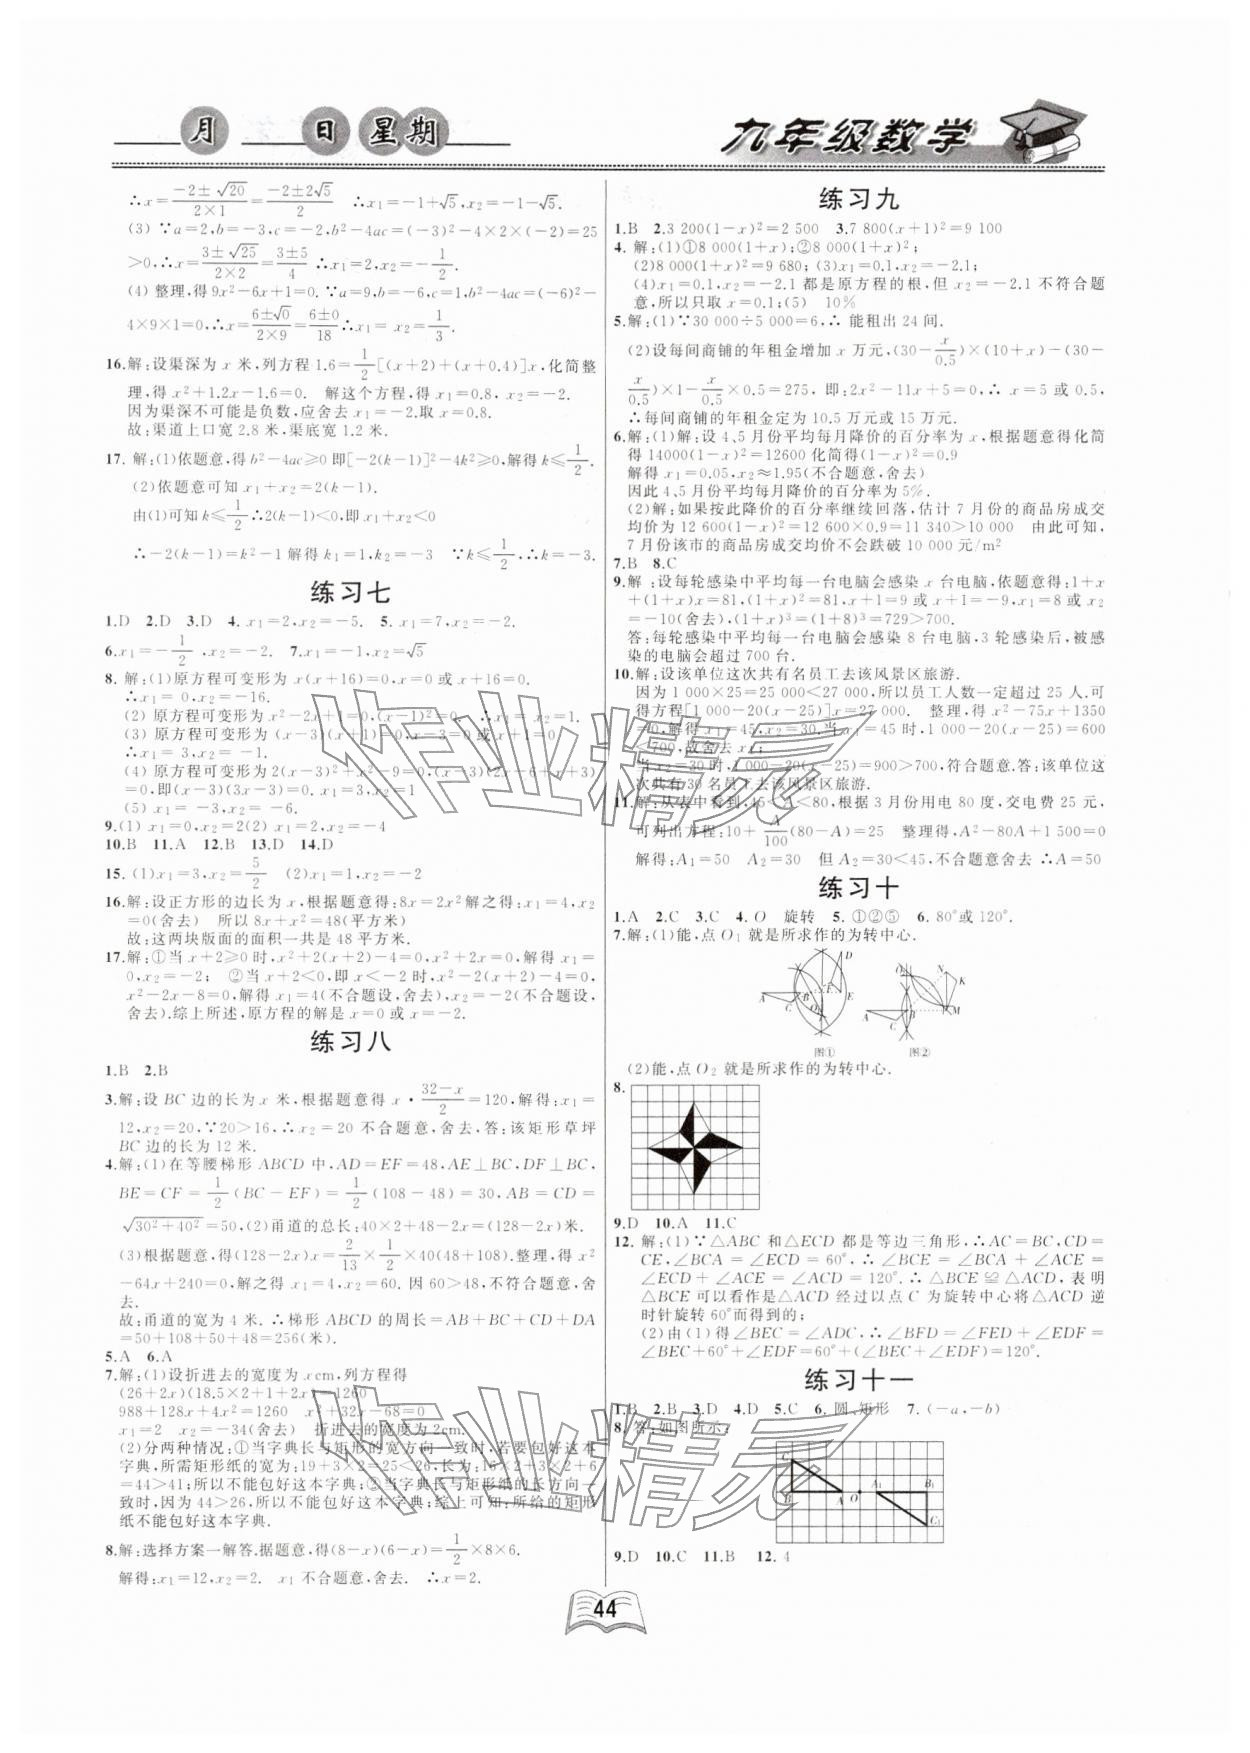 月 日 星期
九年级数学
∴x=(-2±√20)/(2×1)=(-2±2√5)/2 ∴x₁=-1+√5,x₂=-1-√5.
(3) ∵a=2,b=-3,c=-2,b²-4ac=(-3)²-4×2×(-2)=25
>0,∴x=(3±√25)/(2×2)=(3±5)/4 ∴x₁=2,x₂=-1/2.
(4) 整理,得9x²-6x+1=0.∵a=9,b=-6,c=1,b²-4ac=(-6)²-
4×9×1=0,∴x=(6±√0)/(2×9)=(6±0)/18∴x₁= x₂=1/3.
16.解:设渠深为 x 米,列方程 1.6=1/2[(x+2)+(x+0.4)]x,化简整
理,得 x²+1.2x-1.6=0. 解这个方程,得 x₁=0.8, x₂=-2.
因为渠深不可能是负数,应舍去 x₁=-2.取 x=0.8.
故:渠道上口宽 2.8 米,渠底宽 1.2 米.
17. 解:(1)依题意,得 b²-4ac≥0 即[-2(k-1)]²-4k²≥0,解得 k≤1/2.
(2)依题意可知 x₁+x₂=2(k-1).
由(1)可知 k≤1/2∴2(k-1)<0,即 x₁+x₂<0
∴-2(k-1)=k²-1 解得 k₁=1,k₂=-3 ∵k≤1/2,∴k=-3.
练习七
1.D 2.D 3.D 4. x₁=2,x₂=-5. 5. x₁=7,x₂=-2.
6.x₁=-1/2,x₂=-2. 7.x₁=-1,x₂=√5
8. 解:(1)原方程可变形为 x(x+16)=0,x=0 或 x+16=0.
∴x₁=0,x₂=-16.
(2) 原方程可变形为 x²-2x+1=0,(x-1)²=0 ∴x₁=x₂=1.
(3) 原方程可变形为 (x-3)(x+1)=0,x-3=0 或 x+1=0
∴x₁=3, x₂=-1.
(4) 原方程可变形为 2(x-3)²+x²-9=0,(x-3)(2x-6+x+3)
=0,即(x-3)(3x-3)=0. x₁=3,x₂=1.
(5) x₁ =-3, x₂ =-6.
9.(1) x₁=0,x₂=2(2) x₁=2,x₂=-4
10.B 11.A 12.B 13.D 14.D
15. (1)x₁=3,x₂=5/2 (2)x₁=1,x₂=-2
16.解:设正方形的边长为 x,根据题意得:8x=2x²解之得:x₁=4,x₂
=0(舍去) 所以 8x+x²=48(平方米)
故:这两块版面的面积一共是 48 平方米.
17.解:①当 x+2≥0 时,x²+2(x+2)-4=0,x²+2x=0,解得 x₁
=0,x₂=-2; ②当 x+2<0,即 x<-2 时,x²-2(x+2)-4=0,
x²-2x-8=0,解得 x₁=4(不合题设,舍去),x₂=-2(不合题设,
舍去).综上所述,原方程的解是 x=0 或 x=-2.
练习八
1.B 2.B
3.解:设 BC 边的长为 x 米,根据题意得 x·(32-x)/2=120,解得:x₁=
12,x₂=20,∵20>16,∴x₂=20 不合题意,舍去,答:该矩形草坪
BC 边的长为 12 米.
4.解:(1)在等腰梯形 ABCD 中,AD=EF=48,AE⊥BC,DF⊥BC,
BE=CF=1/2(BC-EF)=1/2(108-48)=30,AB=CD=
√(30²+40²)=50,(2)甬道的总长:40×2+48-2x=(128-2x)米.
(3)根据题意,得(128-2x)x=2/13×1/2×40(48+108).整理,得 x²
-64x+240=0,解之得 x₁=4,x₂=60. 因 60>48,不符合题意,舍
去.
故:甬道的宽为 4 米. ∴梯形 ABCD 的周长=AB+BC+CD+DA
=50+108+50+48=256(米).
5.A 6.A
7.解:(1)设折进去的宽度为 xcm,列方程得
(26+2x)(18.5×2+1+2x)=1260
988+128x+4x²=1260 x²+32x-68=0
x₁=2 x₂=-34(舍去) 折进去的宽度为 2cm.
(2)分两种情况:①当字典长与矩形的宽方向一致时,若要包好这本
字典,所需矩形纸的宽为:19+3×2=25<26,长为:16×2+3×2+6
=44>41;所以不能包好这本字典;②当字典长与矩形的长方向一
致时,因为 44>26,所以不能包好这本字典;综上可知:所给的矩形
纸不能包好这本字典.
8.解:选择方案一解答.据题意,得(8-x)(6-x)=1/2×8×6.
解得:x₁=12,x₂=2. x₁ 不合题意,舍去. ∴x=2.
练习九
1.B 2.3 200(1-x)²=2 500 3.7 800(x+1)²=9 100
4. 解:(1)①8 000(1+x);②8 000(1+x)²;
(2)8 000(1+x)²=9 680; (3)x₁=0.1,x₂=-2.1;
(4)x₁=0.1,x₂=-2.1 都是原方程的根,但 x₂=-2.1 不符合题
意,所以只取 x=0.1;(5) 10%
5.解:(1)∵30 000÷5 000=6,∴ 能租出 24 间.
(2)设每间商铺的年租金增加 x 万元,(30-x/0.5)×(10+x)-(30-
x/0.5)×1-x/0.5×0.5=275, 即:2x²-11x+5=0,∴ x=5 或 0.5,
∴每间商铺的年租金定为 10.5 万元或 15 万元.
6.解:(1)解:设 4、5 月份平均每月降价的百分率为 x,根据题意得化简
得 14000(1-x)²=12600 化简得(1-x)²=0.9
解得 x₁=0.05,x₂≈1.95(不合题意,舍去)
因此 4、5 月份平均每月降价的百分率为 5%.
(2)解:如果按此降价的百分率继续回落,估计 7 月份的商品房成交
均价为 12 600(1-x)²=12 600×0.9=11 340>10 000 由此可知,
7 月份该市的商品房成交均价不会跌破 10 000 元/m²
7.B 8.C
9.解 :设每轮感染中平均每一台电脑会感染 x 台电脑,依题意得:1+x
+(1+x)x=81,(1+x)²=81,x+1=9或 x+1=-9,x₁=8 或 x₂
=-10(舍去),(1+x)³=(1+8)³=729>700.
答:每轮感染中平均每一台电脑会感染 8 台电脑,3 轮感染后,被感
染的电脑会超过 700 台.
10.解:设该单位这次共有名员工去该风景区旅游.
因为 1 000×25=25 000<27 000,所以员工人数一定超过 25 人.可
得方程[1 000-20(x-25)]x=27 000. 整理,得 x²-75x+1350
=0,解得 x₁=45,x₂=30.当 x₁=45 时,1 000-20(x-25)=600
<700,故舍去 x₁;
当 x₂=30 时,1 000-20(x-25)=900>700,符合题意.答:该单位这
次共有 30 名员工去该风景区旅游.
11.解:从表中看到,45<A<80,根据 3 月份用电 80 度,交电费 25 元,
可列出方程:10+A/100(80-A)=25 整理得,A²-80A+1 500=0
解得:A₁=50 A₂=30 但 A₂=30<45,不合题意舍去 ∴A=50
练习十
1.A 2.C 3.C 4. O 旋转 5. ①②⑤ 6. 80°或 120°.
7.解:(1)能,点 O₁ 就是所求作的为转中心.
图① 图②
(2)能,点 O₂ 就是所求作的为转中心.
8.
9.D 10.A 11.C
12. 解:(1)∵△ABC 和△ECD 都是等边三角形,∴AC=BC,CD=
CE,∠BCA = ∠ECD = 60°, ∴ ∠BCE = ∠BCA + ∠ACE =
∠ECD + ∠ACE = ∠ACD = 120°. ∴ △BCE ≌ △ACD, 表明
△BCE 可以看作是△ACD 经过以点 C 为旋转中心将△ACD 逆
时针旋转 60°而得到的;
(2)由(1)得∠BEC=∠ADC,∴∠BFD=∠FED+∠EDF=
∠BEC+60°+∠EDF=60°+(∠BEC+∠EDF)=120°.
练习十一
1.B 2.B 3.D 4.D 5.C 6. 圆、矩形 7. (-a,-b)
8. 答:如图所示:
C B A O A₁ B₁ C₁
9.D 10.C 11.B 12. 4
44
作业精灵
作业精灵